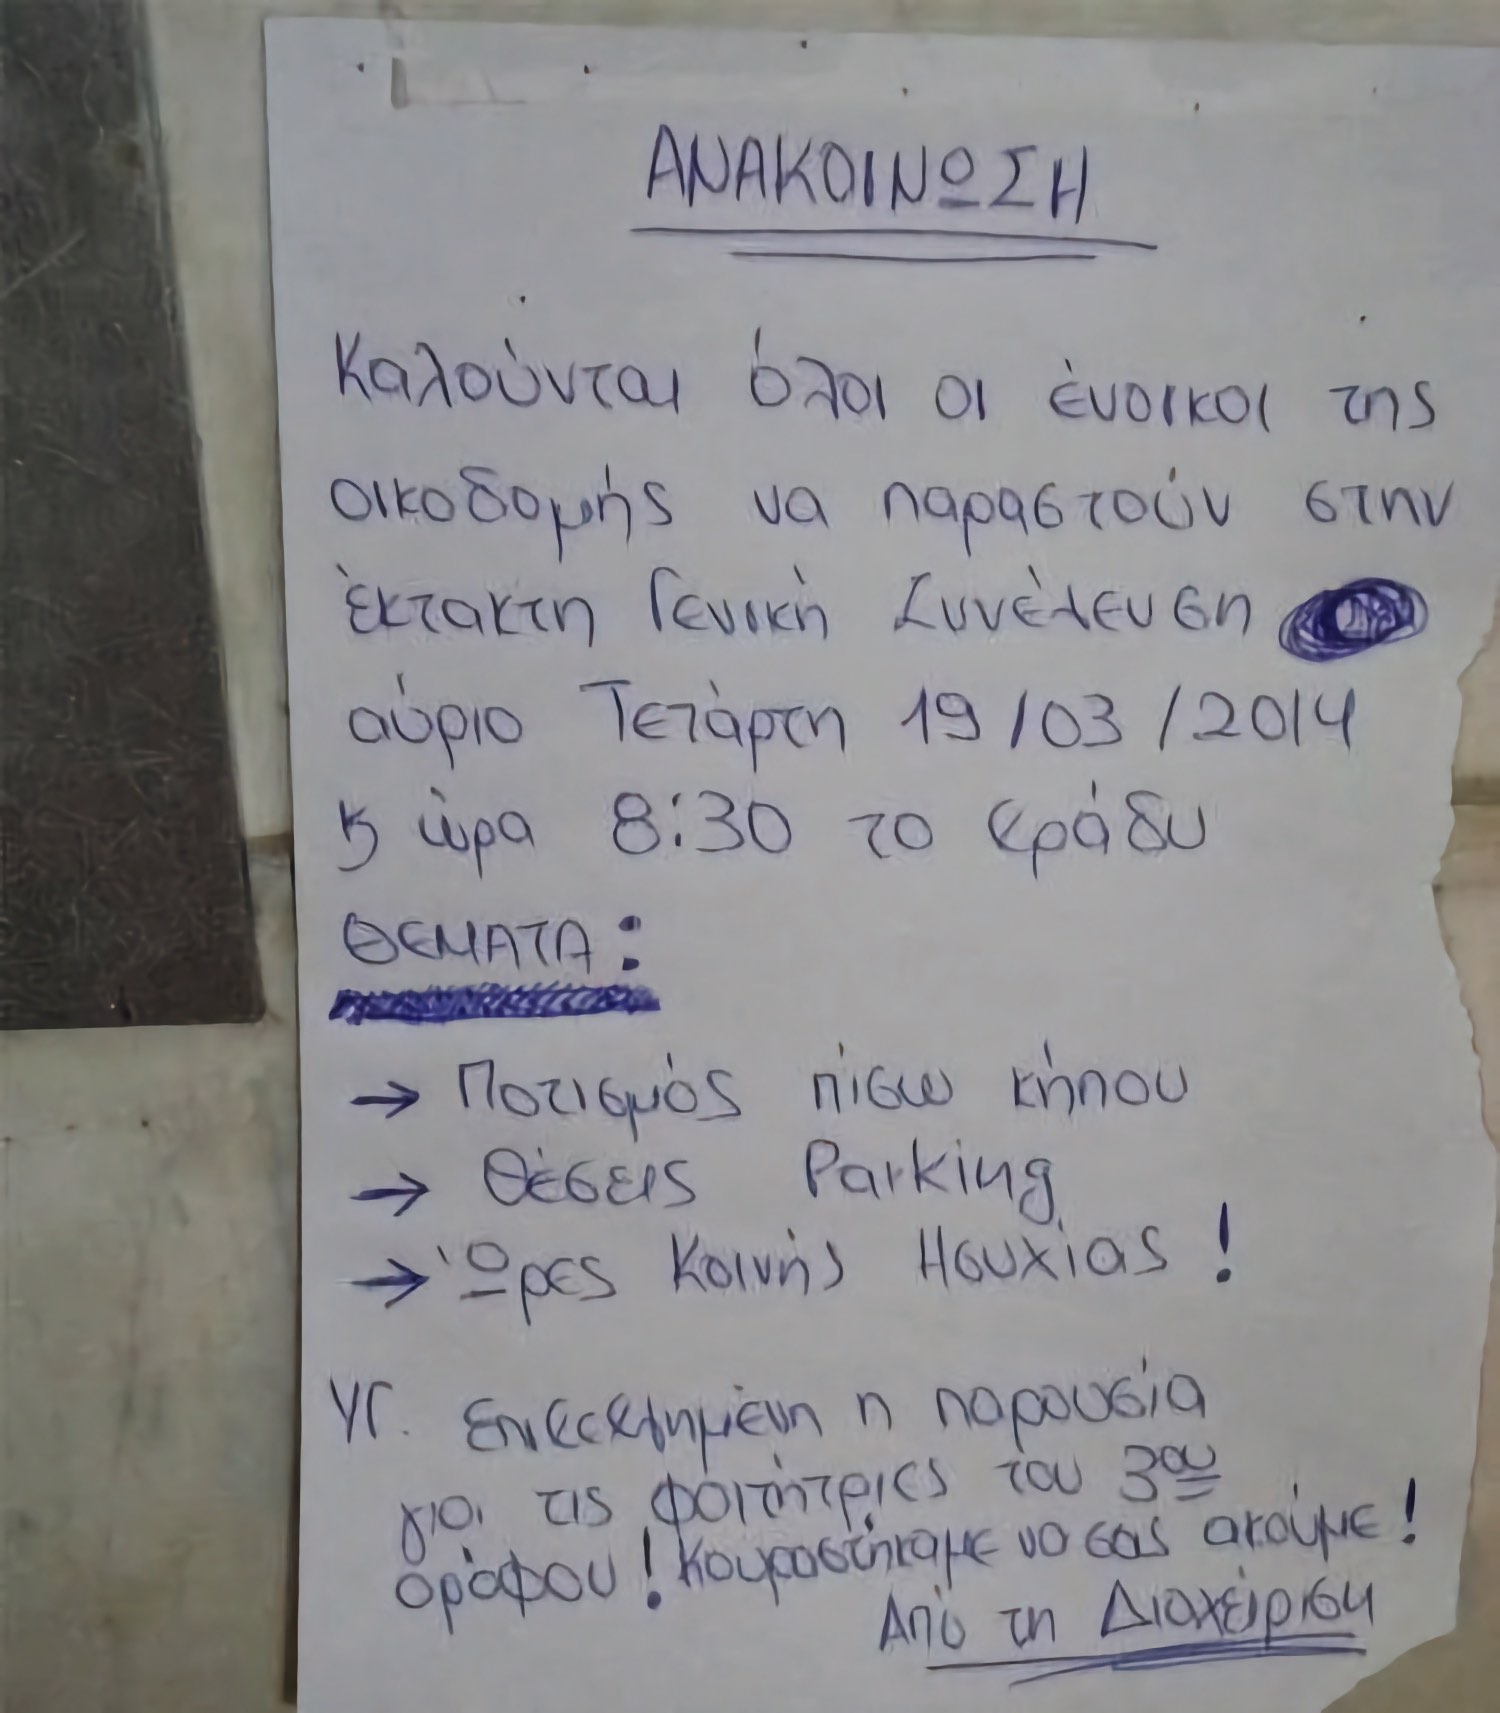 ΑΝΑΚΟΙΝΩΣΗ
Καλούνται όλοι οι ένοικοι της
οικοδομής να παραστούν στην
έκτακτη Γενική Συνέλευση
αύριο Τετάρτη 19/03/2014
κ ώρα 8:30 το βράδυ
ΘΕΜΑΤΑ:
→ Ποτισμός πίσω κήπου
→ Θέσεις Parking
→ Ώρες Κοινής Ησυχίας!
ΥΓ. επιβεβλημένη η παρουσία
για τις φοιτήτριες του 3ου
ορόφου! Κουραστήκαμε να σας ακούμε!
Από τη Διαχείριση